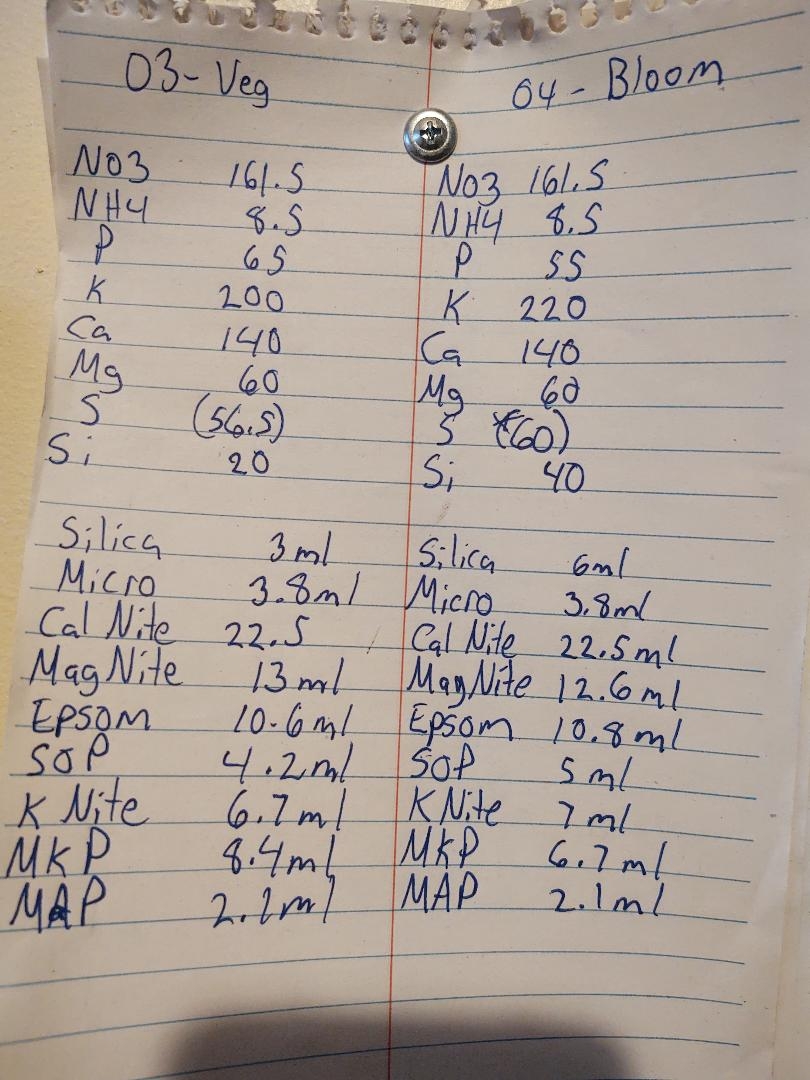 03-Veg
NO3 161.5
NH4 8.5
P 65
K 200
Ca 140
Mg 60
S (56.5)
Si 20
Silica 3ml
Micro 3.8ml
Cal Nite 22.5
MagNite 13ml
Epsom 10.6ml
SOP 4.2ml
K Nite 6.7ml
MKP 8.4ml
MAP 2.2ml
04-Bloom
NO3 161.5
NH4 8.5
P 55
K 220
Ca 140
Mg 60
S (60)
Si 40
Silica 6ml
Micro 3.8ml
Cal Nite 22.5ml
MagNite 12.6ml
Epsom 10.8ml
SOP 5ml
K Nite 7ml
MKP 6.7ml
MAP 2.1ml